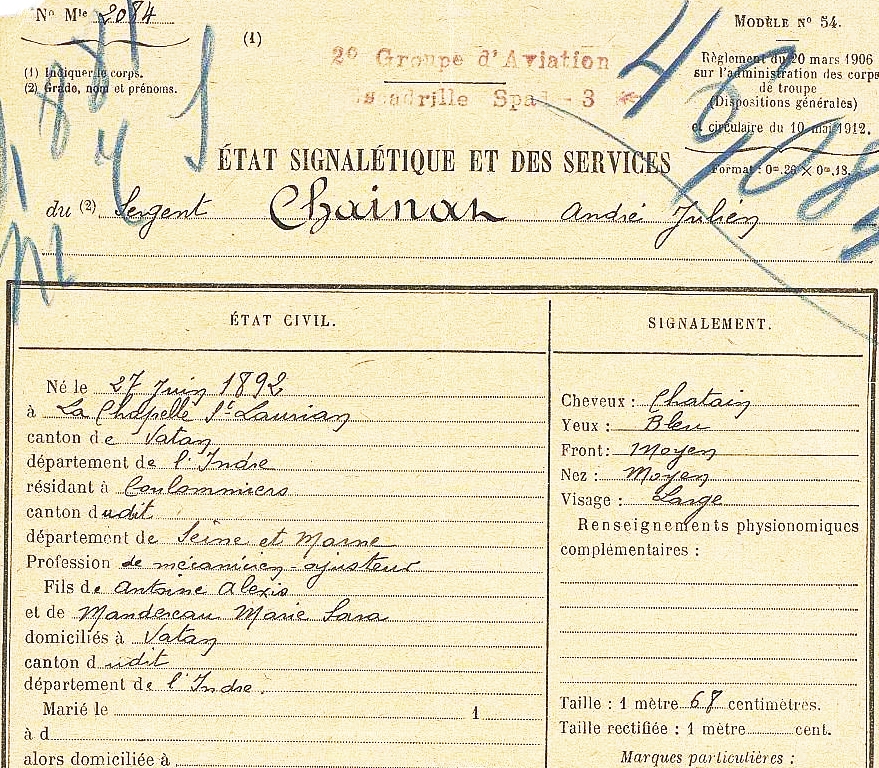 Nº Mle 2084
(1)
2e Groupe d'Aviation
Escadrille Spad - 3
MODÈLE Nº 54.
Règlement du 20 mars 1906
sur l'administration des corps
de troupe
(Dispositions générales)
et circulaire du 10 mai 1912.
Format : 0m.26 × 0m.18.
(1) Indiquer le corps.
(2) Grade, nom et prénoms.
ÉTAT SIGNALÉTIQUE ET DES SERVICES
du (2) Sergent Chainat André Julien
ÉTAT CIVIL.
Né le 27 Juin 1892
à La Chapelle St Laurian
canton de Vatan
département de l'Indre
résidant à Coulommiers
canton dudit
département de Seine et Marne
Profession de mécanicien-ajusteur
Fils de Antoine Alexis
et de Mandereau Marie Sara
domiciliés à Vatan
canton dudit
département de l'Indre.
Marié le 1
à d
alors domiciliée à
SIGNALEMENT.
Cheveux : Chatain
Yeux : Bleu
Front : Moyen
Nez : Moyen
Visage : Large
Renseignements physionomiques
complémentaires :
Taille : 1 mètre 68 centimètres.
Taille rectifiée : 1 mètre cent.
Marques particulières :